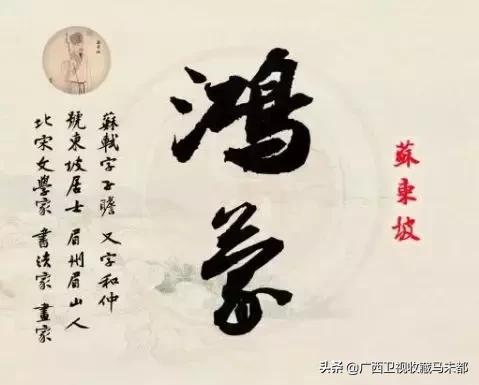 蘇東坡
鴻蒙
蘇軾字子瞻 又字和仲
號東坡居士 眉州眉山人
北宋文學家 書法家 畫家
头条 @广西卫视收藏马未都